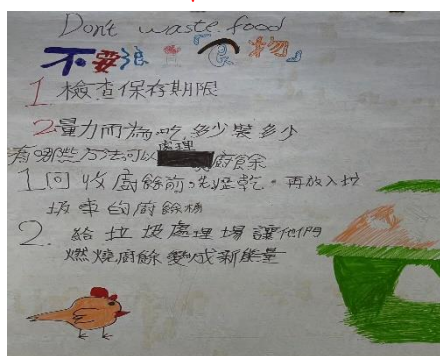 Don't waste food
不要浪費『食物』
1. 檢查保存期限
2. 量力而為,吃多少裝多少
有哪些方法可以處理廚餘
1 回收廚餘前,先瀝乾。再放入垃
圾車的廚餘桶
2. 給垃圾處理場讓他們
燃燒廚餘變成新能量